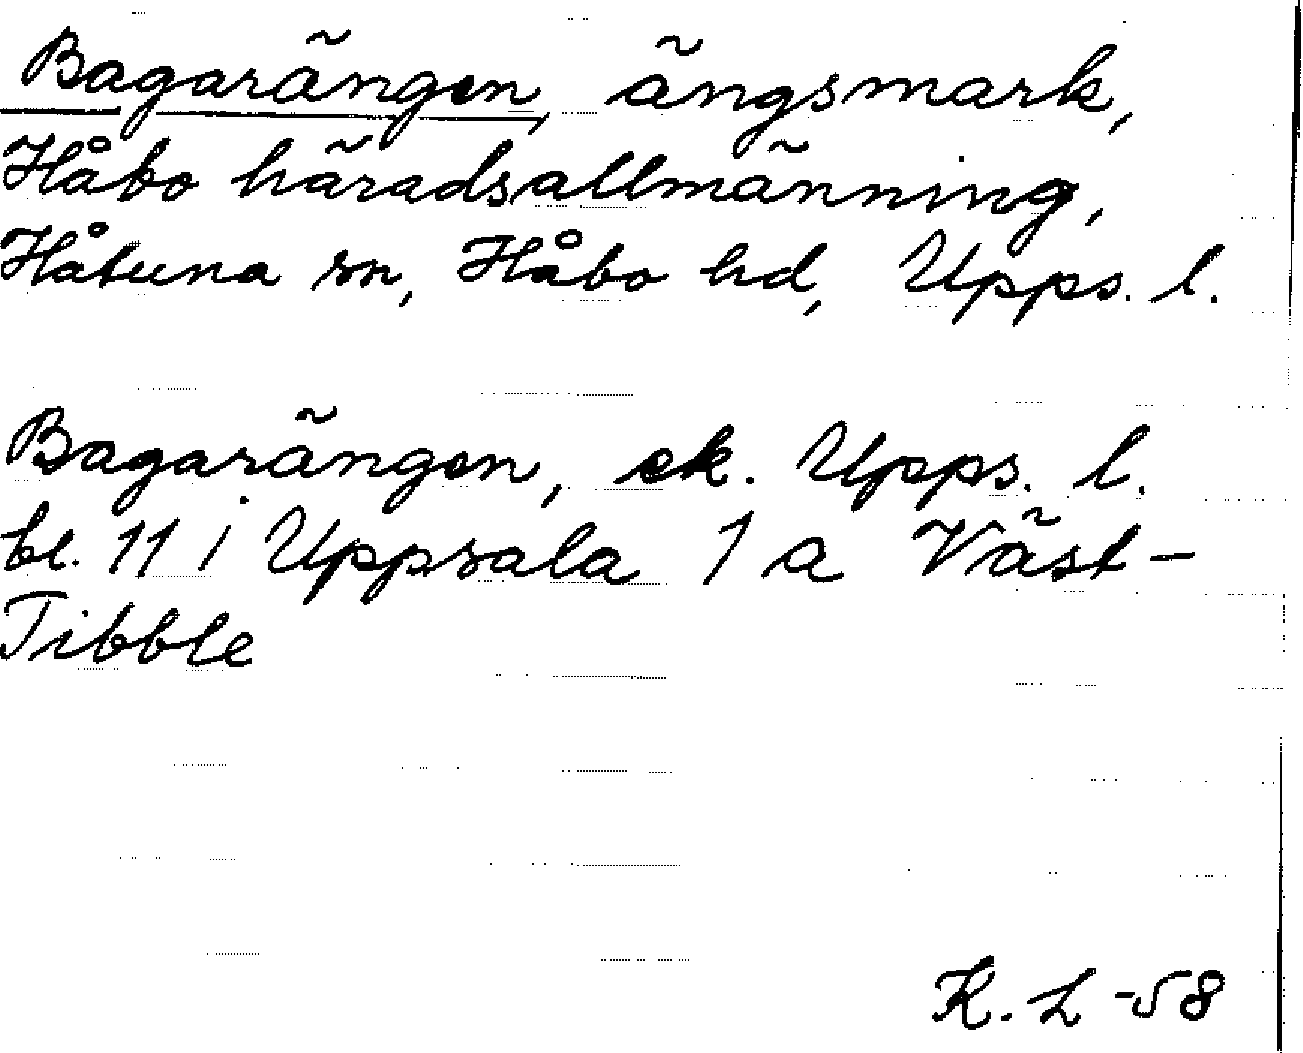 Bagarängen, ängsmark,
Håbo häradsallmänning,
Håtuna sn, Håbo hd, Upps. l.
Bagarängen, ek. Upps. l.
bl. 11 i Uppsala 1 a Väst-
Tibble
K. L -58